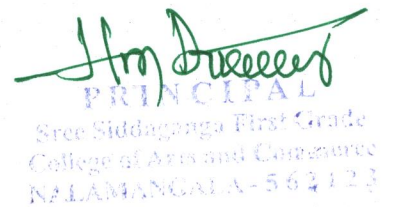 PRINCIPAL
Sree Siddaganga First Grade
College of Arts and Commerce
NALAMANGALA - 562123